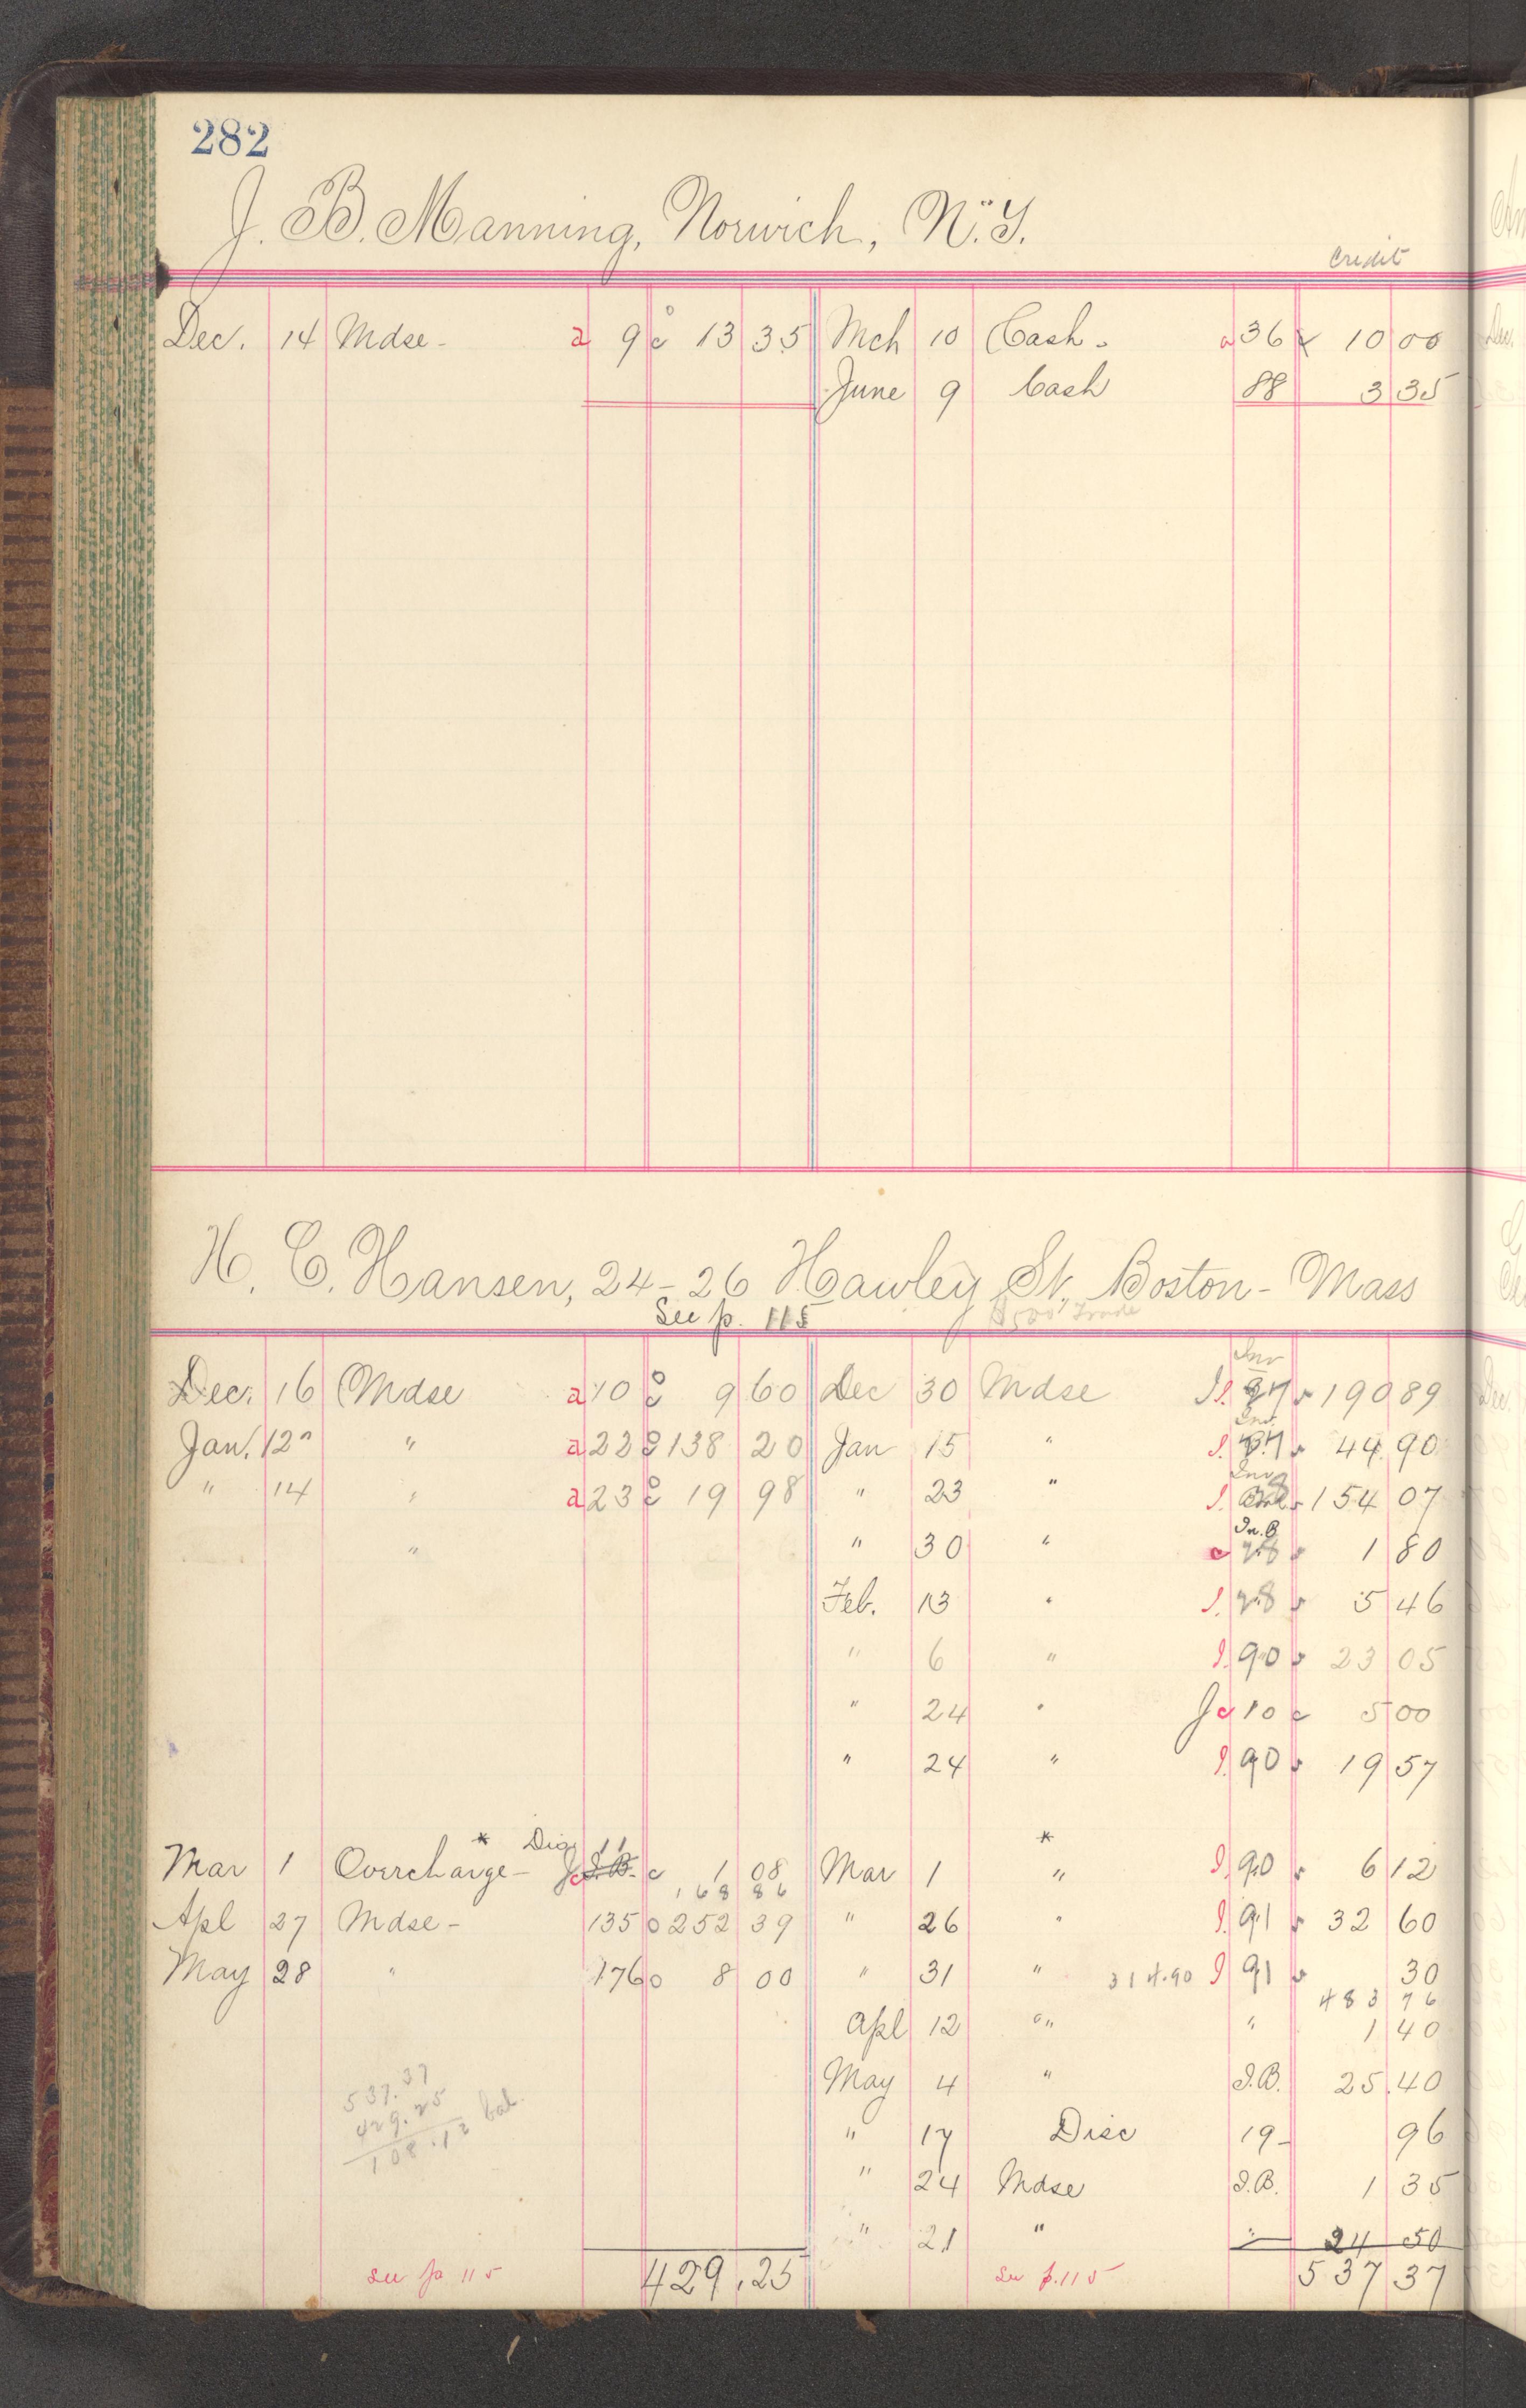 282
J. B. Manning, Norwich, N.Y.
Credit
Dec. 14 Mdse - a 9 c 13 35 Mch 10 Cash - a 36 10 00
June 9 Cash 88 3 35
H. C. Hansen, 24-26 Hawley St, Boston - Mass
See p. 115 Trade
Inv
Dec. 16 Mdse a 10 c 9 60 Dec 30 Mdse I. 190 89
Inv.
Jan. 12 " a 22 c 138 20 Jan 15 " I. 87 44 90
Inv
" 14 " a 23 c 19 98 " 23 " I. 154 07
In. B
" " 30 " c 1 80
Feb. 13 " I. 5 46
" 6 " I. 90 23 05
" 24 " J c 10 c 5 00
" 24 " I. 90 19 57
* Dis 11 *
Mar 1 Overcharge - J c I.B. c 1 08 Mar 1 " I. 90 6 12
168 86
Apl 27 Mdse - 135 0 252 39 " 26 " I. 91 32 60
May 28 " 176 0 8 00 " 31 " 314.90 I 91 30
483 76
Apl 12 " " 1 40
537.37
May 4 " I.B. 25.40
429.25
108.12 bal.
" 17 Disc 19- 96
" 24 Mdse I.B. 1 35
" 21 " " 24 50
see p 115 429.25 see p. 115 537 37